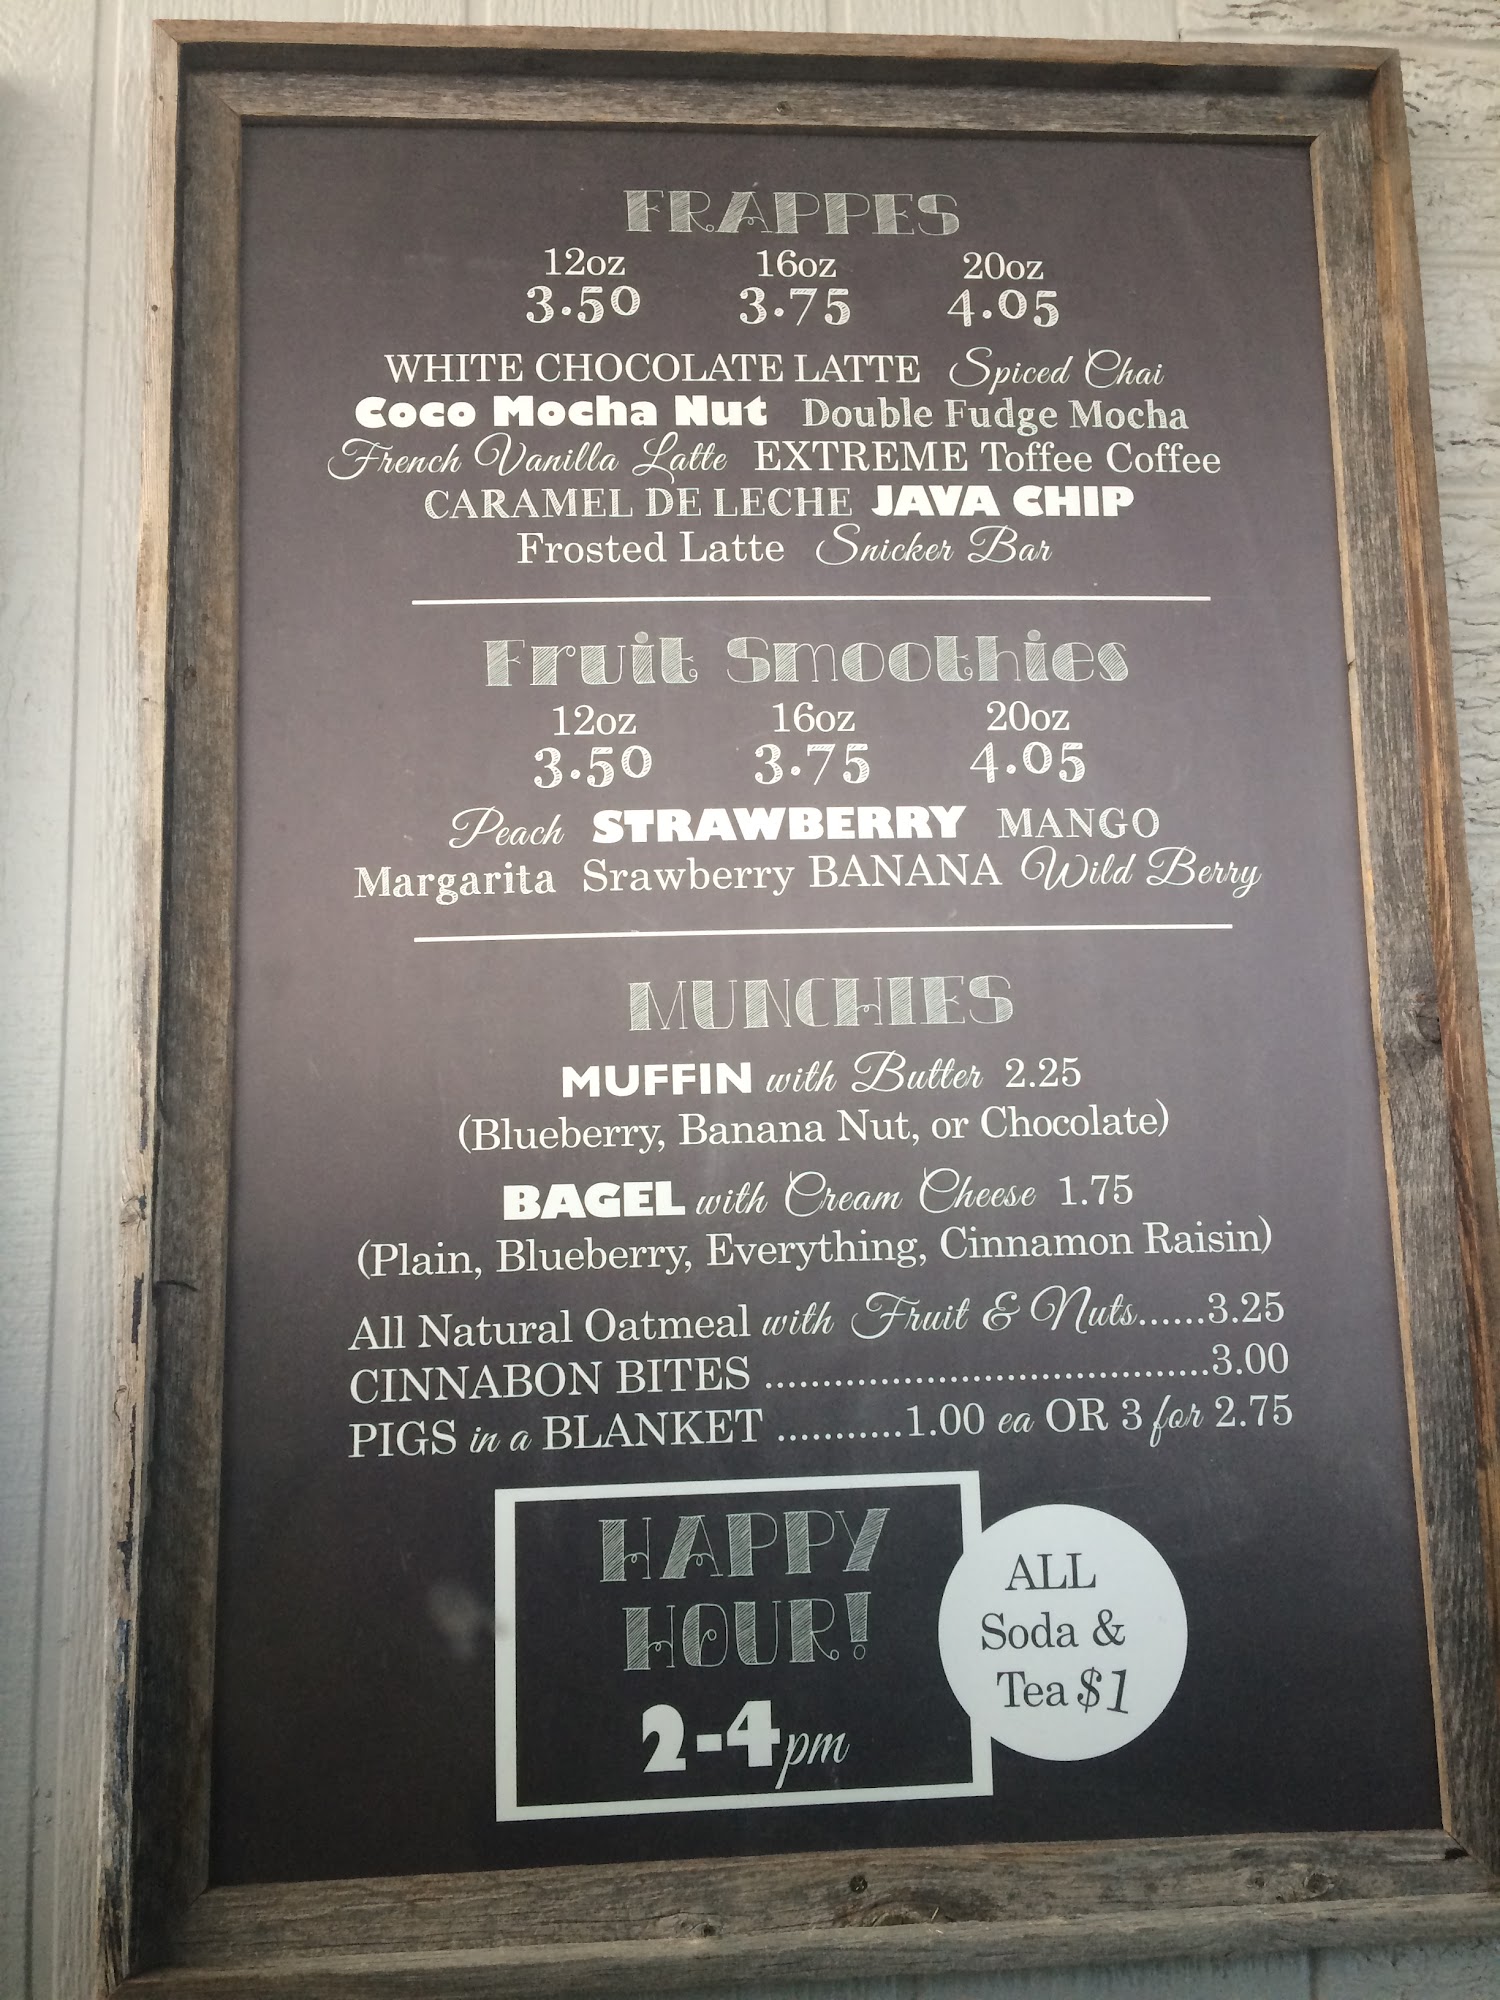 FRAPPES
12oz 16oz 20oz
3.50 3.75 4.05
WHITE CHOCOLATE LATTE Spiced Chai
Coco Mocha Nut Double Fudge Mocha
French Vanilla Latte EXTREME Toffee Coffee
CARAMEL DE LECHE JAVA CHIP
Frosted Latte Snicker Bar
Fruit Smoothies
12oz 16oz 20oz
3.50 3.75 4.05
Peach STRAWBERRY MANGO
Margarita Srawberry BANANA Wild Berry
MUNCHIES
MUFFIN with Butter 2.25
(Blueberry, Banana Nut, or Chocolate)
BAGEL with Cream Cheese 1.75
(Plain, Blueberry, Everything, Cinnamon Raisin)
All Natural Oatmeal with Fruit & Nuts......3.25
CINNABON BITES ......................................3.00
PIGS in a BLANKET ...........1.00 ea OR 3 for 2.75
HAPPY
HOUR!
2-4pm
ALL
Soda &
Tea $1